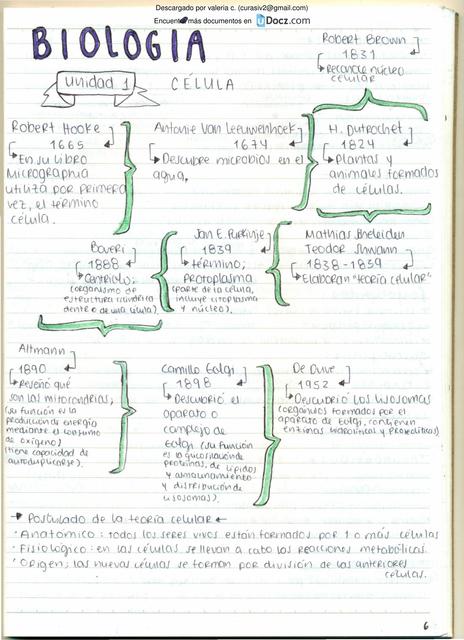 Descargado por valeria c. (curasiv2@gmail.com)
Encuentra más documentos en uDocz.com
BIOLOGIA
Unidad 1
CÉLULA
Robert Brown
1831
Reconoce núcleo
celular
Robert Hooke
1665
En su libro
Micrographia
utiliza por primera
vez, el término
célula.
Antonie Van Leeuwenhoek
1674
Descubre microbios en el
agua.
H. Dutrochet
1824
Plantas y
animales formados
de células.
Mathias
Teodor
1838-1859
Elaboran "teoría celular"
Jan E. Purkinje
1839
término;
Protoplasma
(parte de la célula,
incluye citoplasma
y núcleo).
Boveri
1888
Centriolo;
(organismo de
estructura cilíndrica
dentro de una célula).
Altmann
1890
Reveló qué
son las mitocondrias,
(su función es la
producción de energía
mediante el consumo
de oxígeno)
(tiene capacidad de
autoduplicarse).
Camillo Golgi
1898
Descubrió el
aparato o
complejo de
Golgi (su función
es la glucosilación de
proteínas, de lípidos
y almacenamiento
y distribución de
lisosomas).
De Duve
1952
Descubrió los lisosomas
(orgánulos formados por el
aparato de Golgi, contienen
enzimas hidrolíticas y proteolíticas)
Postulado de la teoría celular
· Anatómico: todos los seres vivos están formados por 1 o más células
· Fisiológico: en las células se llevan a cabo las reacciones metabólicas.
· Origen; las nuevas células se forman por división de las anteriores
células.
6